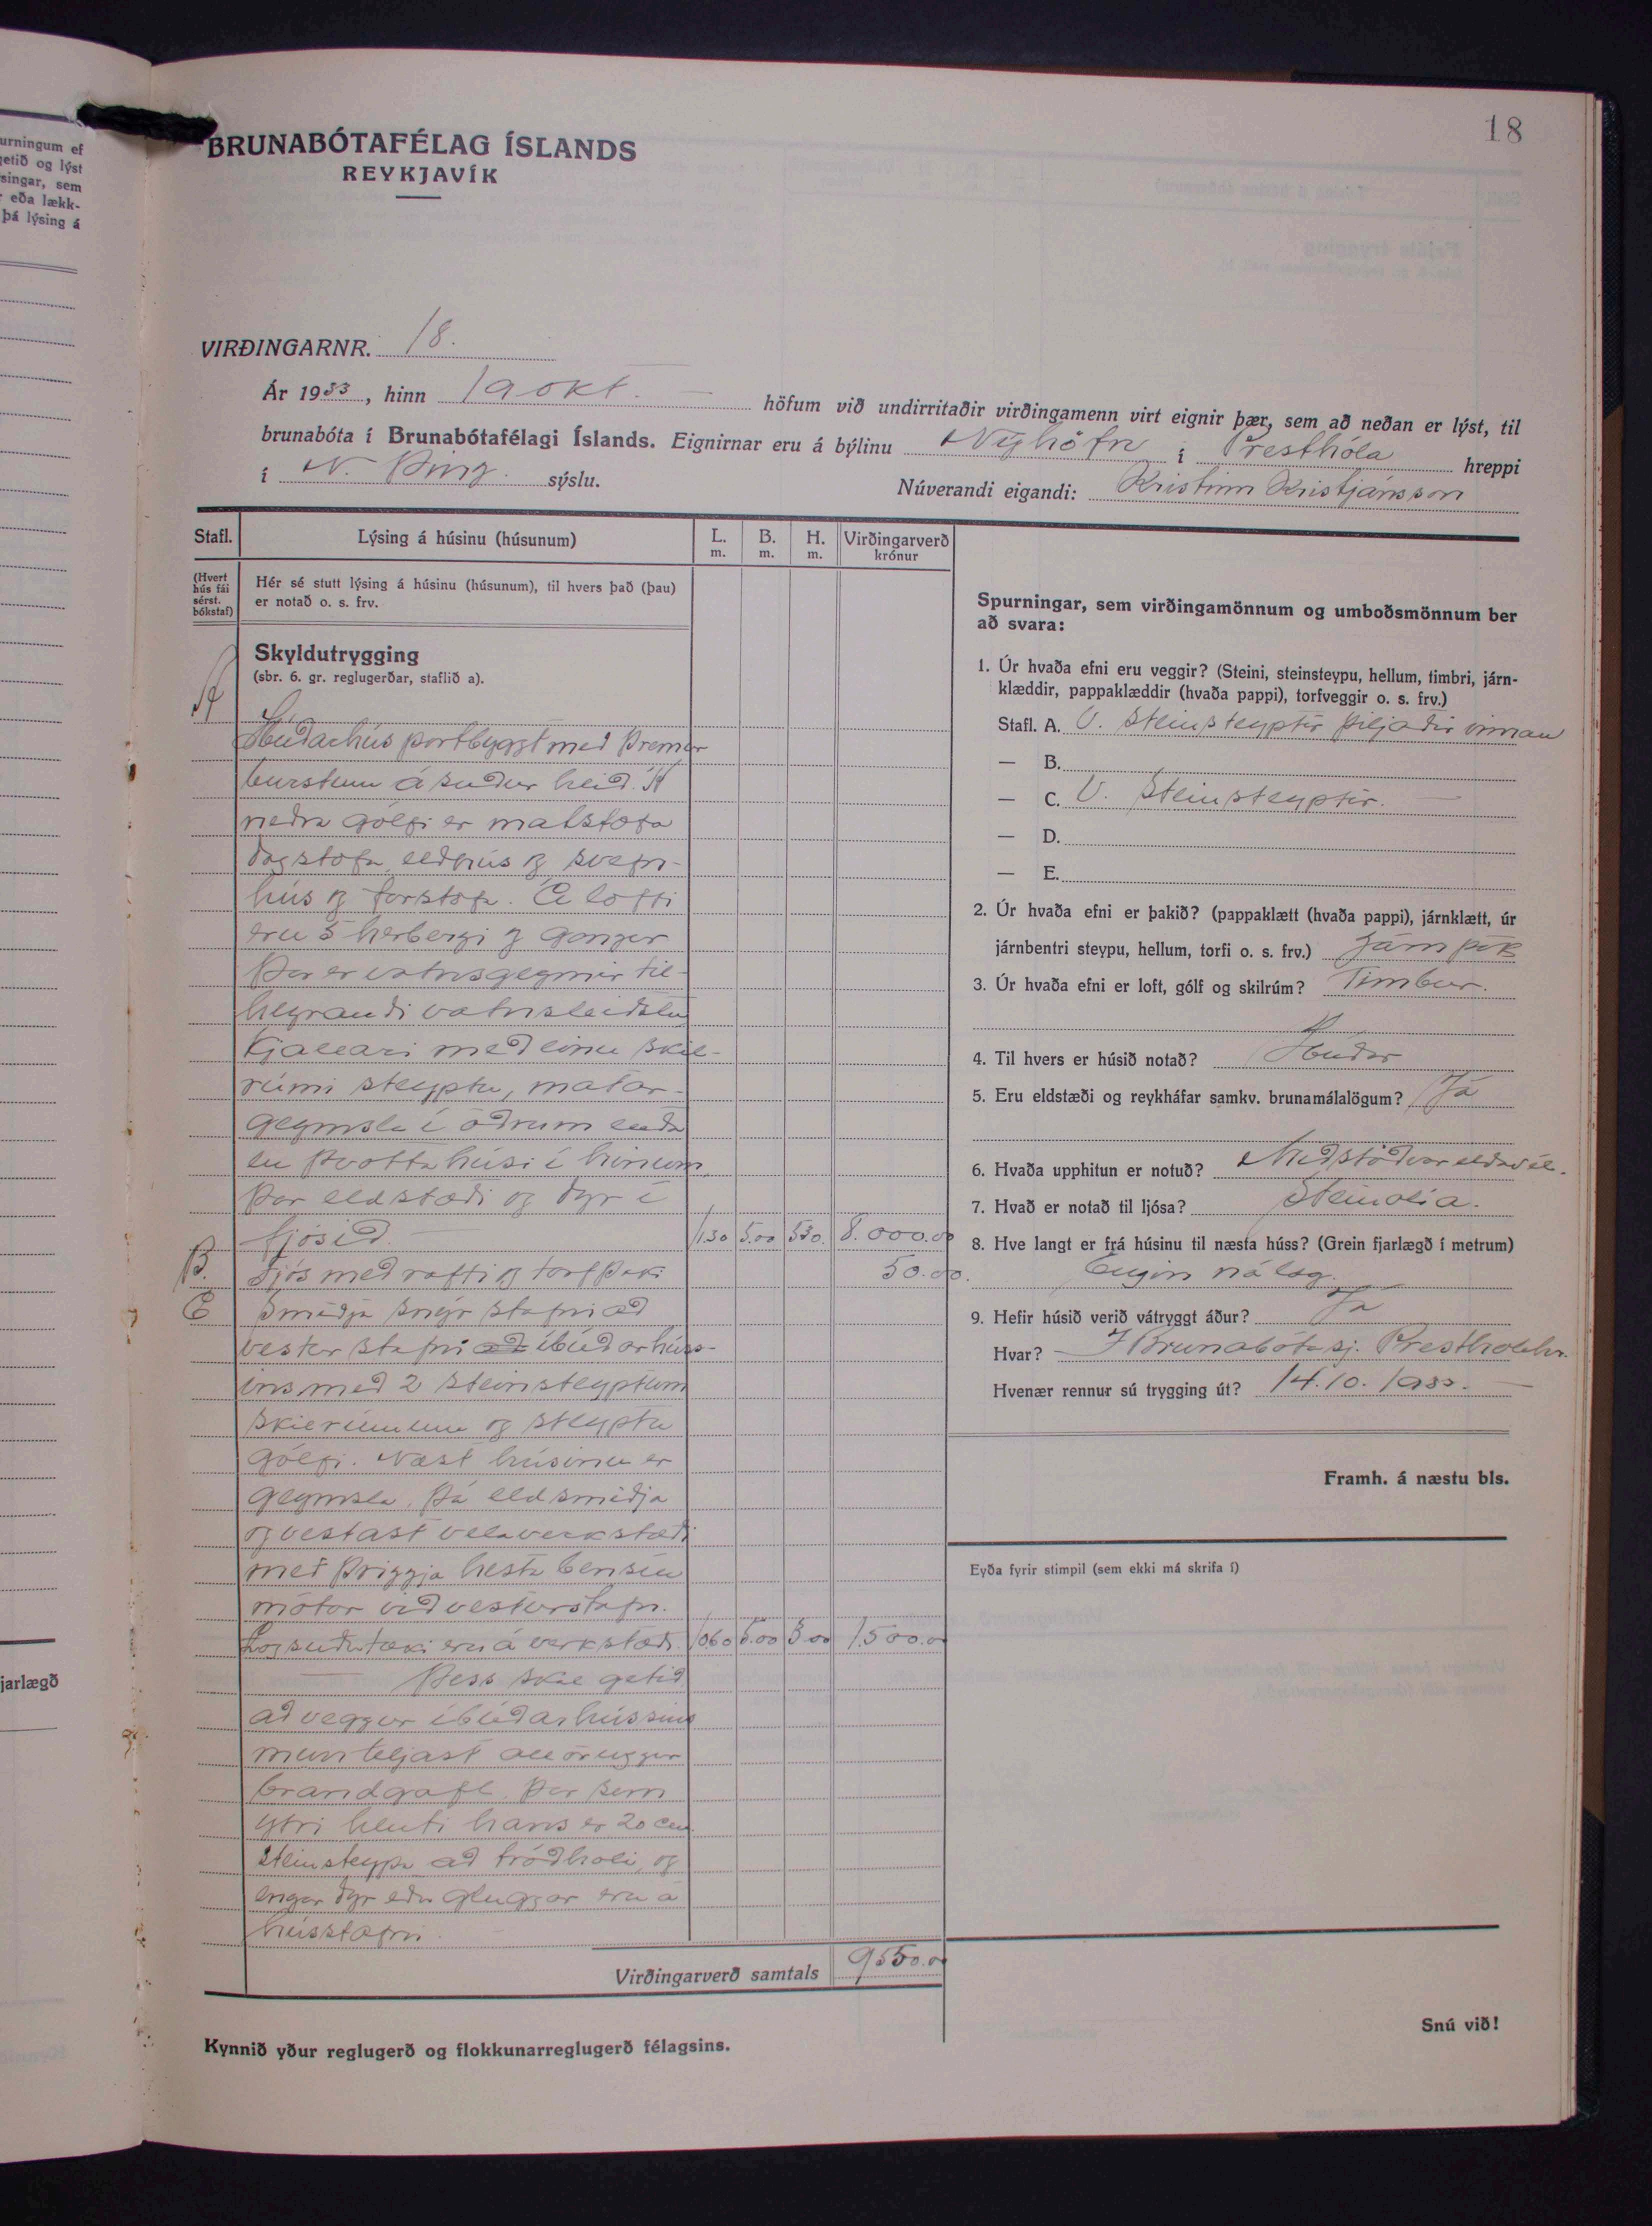 urningum ef
getið og lýst
singar, sem
r eða lækk-
þá lýsing á
jarlægð
18
BRUNABÓTAFÉLAG ÍSLANDS
REYKJAVÍK
VIRÐINGARNR. 18.
Ár 1933, hinn 19 okt. höfum við undirritaðir virðingamenn virt eignir þær, sem að neðan er lýst, til
brunabóta í Brunabótafélagi Íslands. Eignirnar eru á býlinu Nýhöfn í Presthóla hreppi
í N. Þing. sýslu. Núverandi eigandi: Kristinn Kristjánsson
Stafl. Lýsing á húsinu (húsunum) L. m. B. m. H. m. Virðingarverð krónur
(Hvert hús fái sérst. bókstaf)
Hér sé stutt lýsing á húsinu (húsunum), til hvers það (þau)
er notað o. s. frv.
Skyldutrygging
(sbr. 6. gr. reglugerðar, staflið a).
A
Íbúdarhús portbyggt med þremur
burstum á sudur hlid. Á
nedra gólfi er matstofa
dagstofa, eldhús og svefn-
hús og forstofa. Á lofti
eru 5 herbergi og gangur
Þar er vatnsgeymir til-
heyrandi vatnsleidslu
Kjallari med einu skil-
rúmi steyptu, matar-
geymsla í ödrum enda
en þvottahúsi í hinum
Þar eldstædi og dyr í
fjósid. 11.30 5.00 5.30. 8.000.00
B. Fjós med rafti og torfþaki 50.00.
C Smidja snýr stafni ad
vestur stafni ad íbúdarhúss-
ins med 2 steinsteyptum
skilrúmum og steyptu
gólfi. Næst húsinu er
geymsla, þá eldsmidja
og vestast vélaverkstædi
med þriggja hesta bensín
mótor vid vesturstafn.
Logsudutæki eru á verkstædi. 10.60 5.00 3.00 1.500.00
Þess skal getid
ad veggur íbúdarhússins
mun teljast all öruggur
brandgafl. Þar sem
ytri hluti hans er 20 cm
steinsteypa ad tródholi, og
engar dyr eda gluggar eru á
hússtafni.
Virðingarverð samtals 9550.00
Spurningar, sem virðingamönnum og umboðsmönnum ber
að svara:
1. Úr hvaða efni eru veggir? (Steini, steinsteypu, hellum, timbri, járn-
klæddir, pappaklæddir (hvaða pappi), torfveggir o. s. frv.)
Stafl. A. V. Steinsteyptir þiljadir innan
— B.
— C. V. Steinsteyptir.
— D.
— E.
2. Úr hvaða efni er þakið? (pappaklætt (hvaða pappi), járnklætt, úr
járnbentri steypu, hellum, torfi o. s. frv.) Járnþak
3. Úr hvaða efni er loft, gólf og skilrúm? Timbur.
4. Til hvers er húsið notað? Íbúdar
5. Eru eldstæði og reykháfar samkv. brunamálalögum? Já
6. Hvaða upphitun er notuð? Midstödvar eldavél.
7. Hvað er notað til ljósa? Steinolía.
8. Hve langt er frá húsinu til næsta húss? (Grein fjarlægð í metrum)
Engin nálæg.
9. Hefir húsið verið vátryggt áður? Já
Hvar? Í Brunabótasj. Presthólahr.
Hvenær rennur sú trygging út? 14.10.1933.
Framh. á næstu bls.
Eyða fyrir stimpil (sem ekki má skrifa í)
Snú við!
Kynnið yður reglugerð og flokkunarreglugerð félagsins.